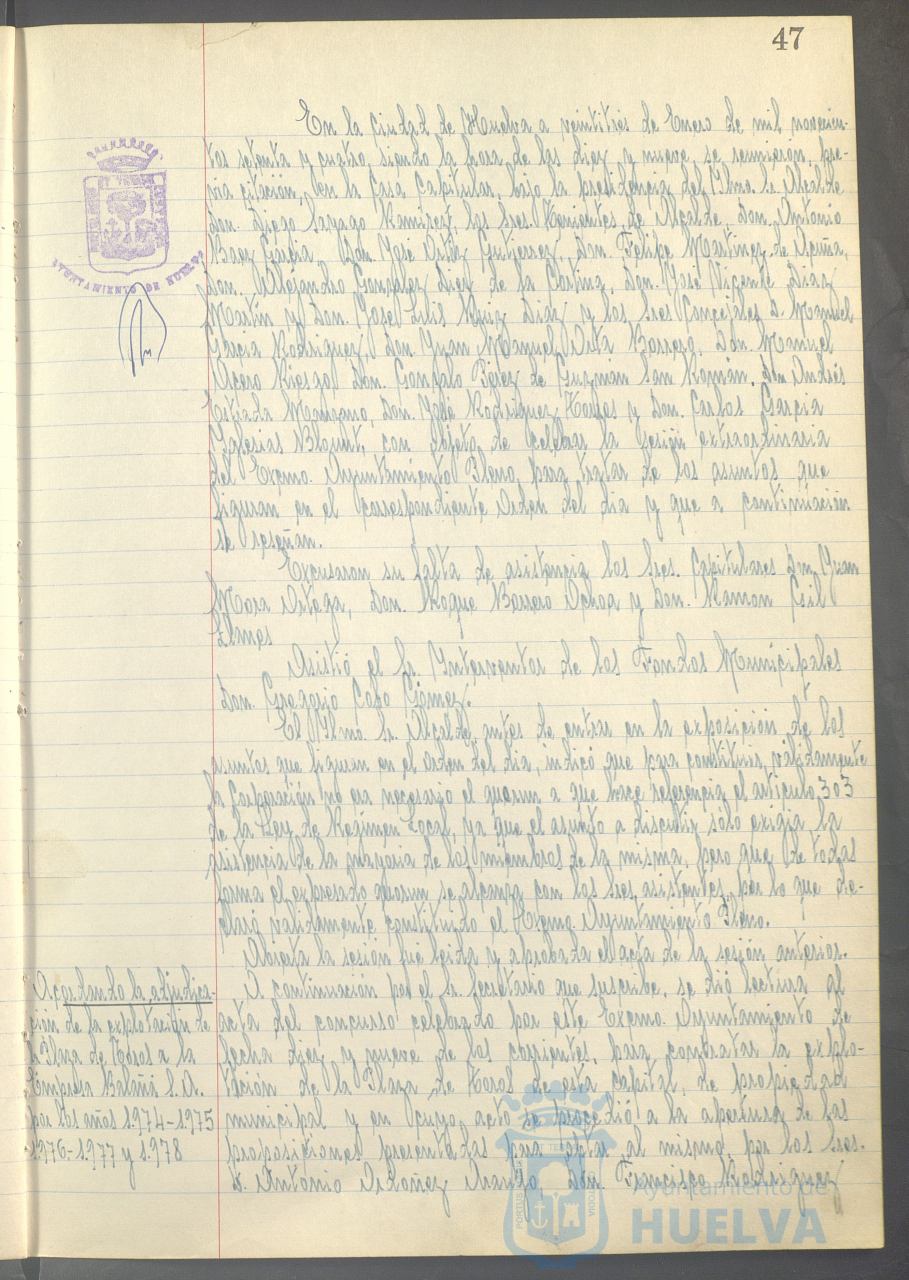 47
En la ciudad de Huelva a veintitres de Enero de mil novecien-
tos setenta y cuatro, siendo la hora de las diez y nueve, se reunieron, pre-
via citación, en la Casa Capitular, bajo la presidencia del Ylmo. Sr. Alcalde
Don. Diego Sayago Ramirez, los Sres. Tenientes de Alcalde Don. Antonio
Baez Garcia, Don. José Ortiz Gutierrez, Don. Felipe Martinez de Acuña,
Don. Alejandro Gonzalez Diez de la Cortina, Don. José Vicente Diaz
Martin y Don. José Luis Ruiz Diaz y los Sres Concejales D. Manuel
Garcia Rodriguez, Don. Juan Manuel Orta Borrero, Don. Manuel
Riego, Don. Gonzalo Perez de Guzman San Roman, Don Andrés
Estrada Don. José Rodriguez Torres y Don. Carlos Garcia
Yglesias Blount, con objeto de celebrar la sesión extraordinaria
del Excmo. Ayuntamiento Pleno, para tratar de los asuntos que
figuran en el correspondiente Orden del dia y que a continuación
se reseñan.
Excusaron su falta de asistencia los Sres. Capitulares Don. Juan
Mora Ortega, Don. Roque Barrero Ochoa y Don. Ramon Gil
Llanes
Asistió el Sr. Interventor de los Fondos Municipales
Don. Gregorio Cabo Gómez.
El Ylmo. Sr. Alcalde, antes de entrar en la exposición de los
asuntos que figuran en el Orden del dia, indicó que para constituir válidamente
la Corporación no era necesario el quorum a que hace referencia el articulo 303
de la Ley de Regimen Local, ya que el asunto a discutir sólo exigia la
asistencia de la mayoria de los miembros de la misma, pero que de todas
forma el expresado quorum se alcanza con los Sres asistentes, por lo que de-
claró validamente constituido el Excmo Ayuntamiento Pleno.
Abierta la sesión fué leida y aprobada el acta de la sesión anterior.
A continuación por el Sr. Secretario que suscribe, se dió lectura al
acta del concurso celebrado por este Excmo. Ayuntamiento de
fecha diez y nueve de los corrientes, para contratar la explo-
tación de la Plaza de Toros de esta capital, de propiedad
municipal y en cuyo acto se procedió a la apertura de las
proposiciones presentadas para optar al mismo, por los Sres.
D. Antonio Ordoñez Don. Francisco Rodriguez
Acordando la adjudica-
ción de la explotación de
la Plaza de Toros a la
Empresa Balañá S.A.
por los años 1.974-1975
1976-1977 y 1978
AYUNTAMIENTO DE HUELVA
Ayuntamiento de
HUELVA